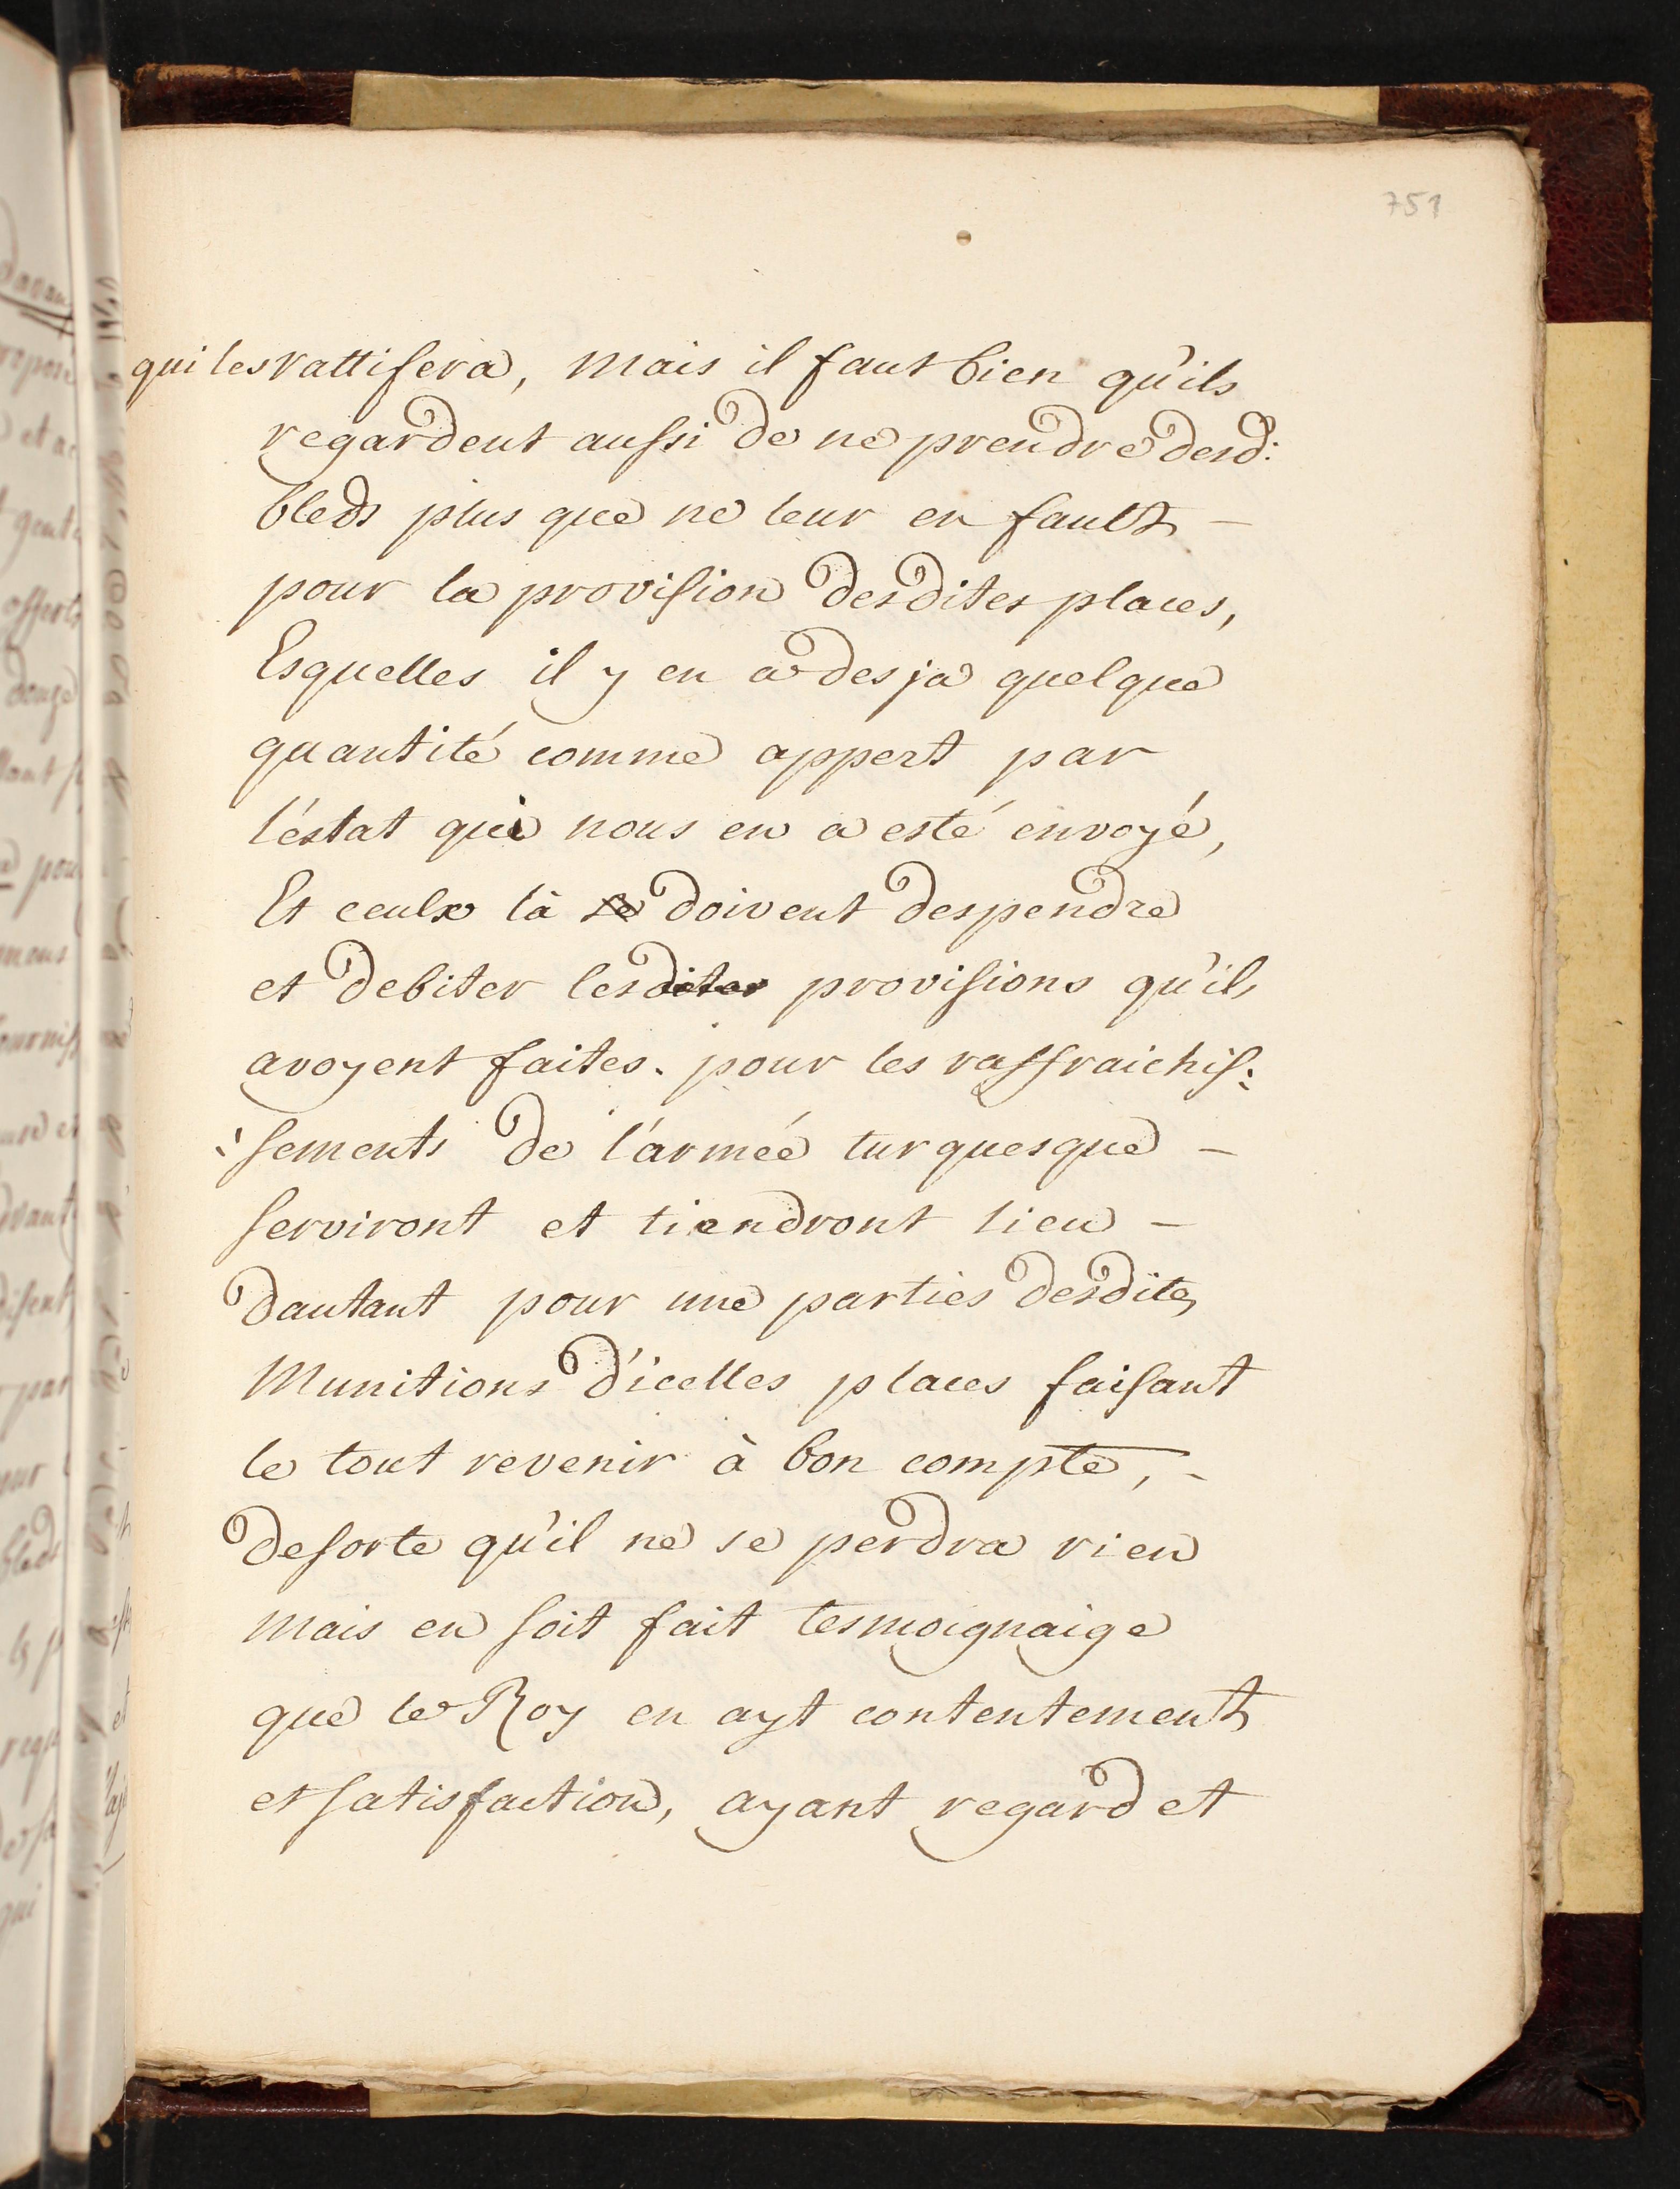 751
qui les rattifera, mais il faut bien qu'ils
regardent aussi de ne prendre desd:
bleds plus que ne leur en fault –
pour la provision desdites places,
Esquelles il y en a desja quelque
quantité comme appert par
l'éstat qui nous en a esté envoyé,
Et ceulx là doivent despendre
et debiter lesdites provisions qu'ils
avoyent faites. pour les raffraichis:
:sements de l'armée turquesque –
serviront et tiendront lieu –
dautant pour une parties desdites
Munitions d'icelles places faisant
le tout revenir à bon compte, –
desorte qu'il ne se perdra rien
mais en soit fait tesmoignaige
que le Roy en ayt contentement
et satisfaction, ayant regard et